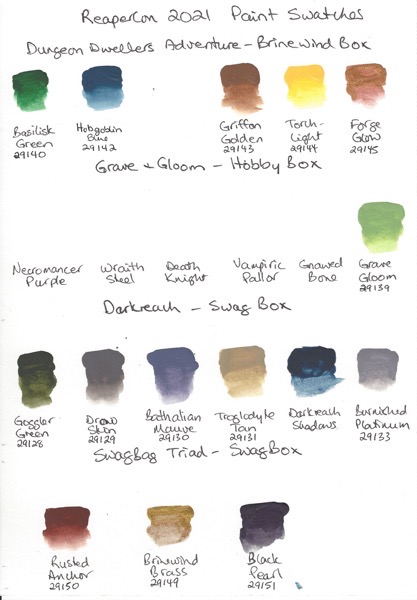 ReaperCon 2021 Paint Swatches
Dungeon Dwellers Adventure - Brinewind Box
Basilisk Green 29140
Hobgoblin Blue 29142
Griffon Golden 29143
Torch-Light 29144
Forge Glow 29145
Grave & Gloom - Hobby Box
Necromancer Purple
Wraith Steel
Death Knight
Vampiric Pallor
Gnawed Bone
Grave Gloom 29139
Darkreach - Swag Box
Goggler Green 29128
Drow Skin 29129
Bathalian Mauve 29130
Troglodyte Tan 29131
Darkreach Shadows
Burnished Platinum 29133
SwagBag Triad - SwagBox
Rusted Anchor 29150
Brinewind Brass 29149
Black Pearl 29151